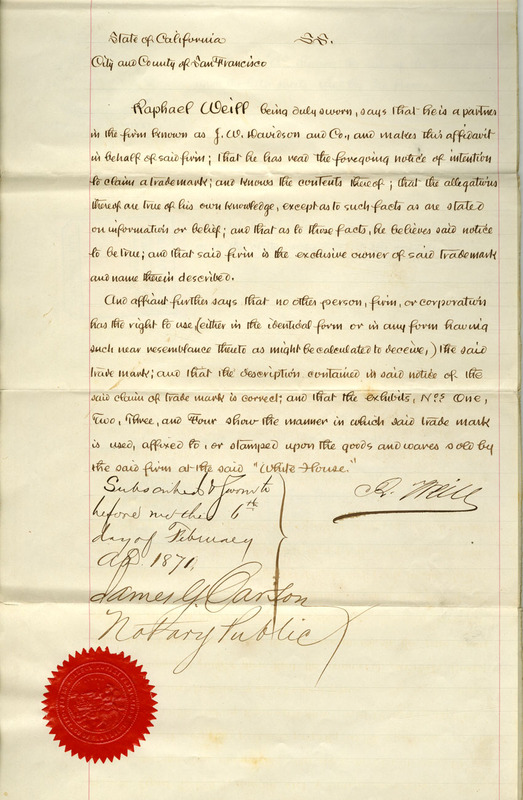 State of California SS.
City and County of San Francisco
Raphael Weill being duly sworn, says that he is a partner
in the firm known as J. W. Davidson and Co., and makes this affidavit
in behalf of said firm; that he has read the foregoing notice of intention
to claim a trade mark; and knows the contents thereof; that the allegations
thereof are true of his own knowledge, except as to such facts as are stated
on information or belief; and that as to those facts, he believes said notice
to be true; and that said firm is the exclusive owner of said trade mark
and name therein described.
And affiant further says that no other person, firm, or corporation
has the right to use, (either in the identical form or in any form having
such near resemblance thereto as might be calculated to deceive,) the said
trade mark; and that the description contained in said notice of the
said claim of trade mark is correct; and that the exhibits, Nos One,
Two, Three, and Four show the manner in which said trade mark
is used, affixed to, or stamped upon the goods and wares sold by
the said firm at the said "White House."
Subscribed & Sworn to
before me this 6th
day of February
AD. 1871,
James G. Carson
Notary Public
R. Weill